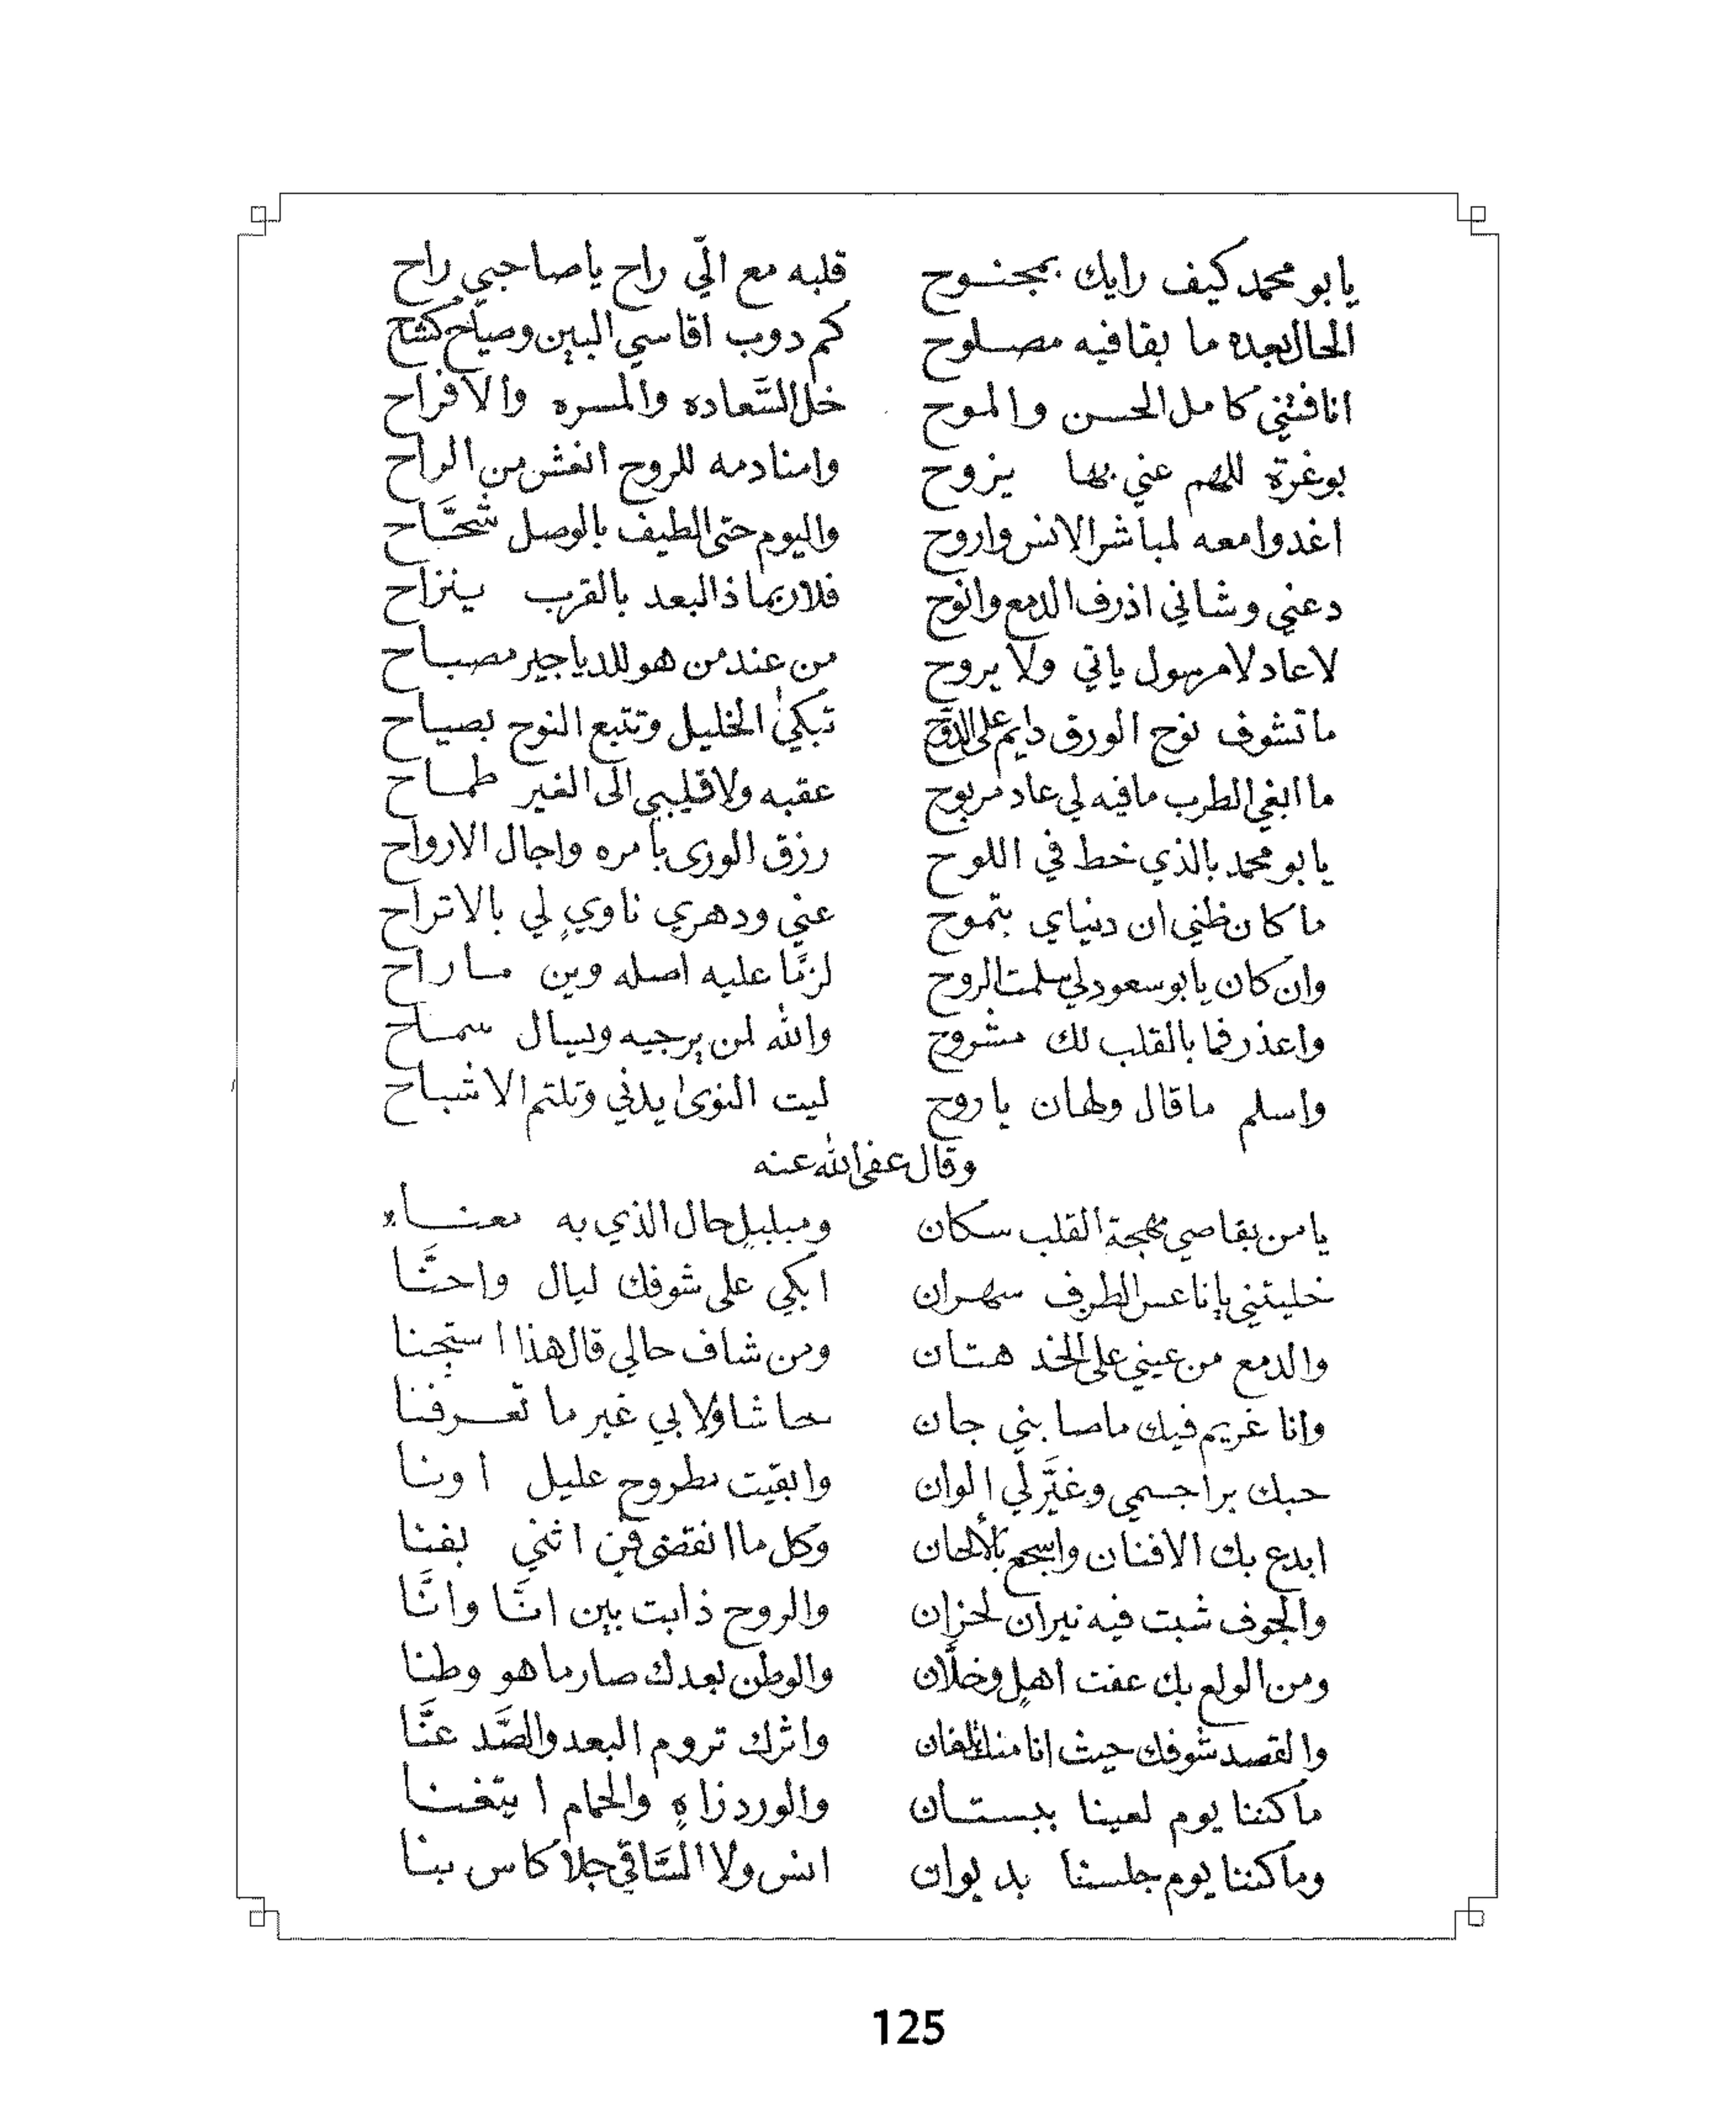 يا بو محمد كيف رايك بمجنوح قلبه مع الّي راح يا صاحبي راح
الحال بعده ما بقا فيه مصلوح كم دوب اقاسي البين وصياح كشاح
انا فتني كامل الحسن والموح خل السَّعاده والمسره والافراح
بو غرة للهم عني بها يزوح وامنادمه للروح انغش من الراح
اغدوا معه لمباشر الانس واروح واليوم حتى الطيف بالوصل شحَّاح
دعني وشاني اذرف الدمع وانوح فلا ربما ذا البعد بالقرب ينزاح
لا عاد لا مرسول ياتي ولا يروح من عند من هو للدياجير مصباح
ما تشوف نوح الورق دايم على الدوح تبكي الخليل وتتبع النوح بصياح
ما ابغي الطرب ما فيه لي عاد مربوح عقبه ولا قليبي الى الغير طماح
يا بو محمد بالذي خط في اللوح رزق الورى بامره واجال الارواح
ما كان ظني ان دنياي بتموح عني ودهري ناوي لي بالاتراح
وان كان يا بو سعود لي سلمت الروح لزمًا عليه اصله وين ما راح
واعذر فما بالقلب لك مشروح والله لمن يرجيه ويسال سماح
واسلم ما قال ولهان يا روح ليت النوى يدني وتلتم الاشباح
وقال عفى الله عنه
يا من بقاصي مهجة القلب سكان ومبلبل حال الذي به معناء
خليتني يا ناعس الطرف سهران ابكي على شوفك ليال واحنَّا
والدمع من عيني على الخد هتان ومن شاف حالي قال هذا استجنا
وانا غريم فيك ما صابني جان حاشا ولا بي غير ما تعرفنا
حبك برا جسمي وغيَّر لي الوان وابقيت مطروح عليل اونا
ابدع بك الافنان واسجع بالألحان وكل ما انقضى فن اثني بفنا
والجوف شبت فيه نيران لحزان والروح ذابت بين انَّا وانَّا
ومن الولع بك عفت اهل وخلَّان والوطن بعدك صار ما هو وطنا
والقصد شوفك حيث انا منك تلفان واثرك تروم البعد والصَّد عنَّا
ما كننا يوم لعينا ببستان والورد زاه والحمام ايتغنا
وما كننا يوم جلسنا بديوان انس ولا السَّاقي جلا كاس بنا
125